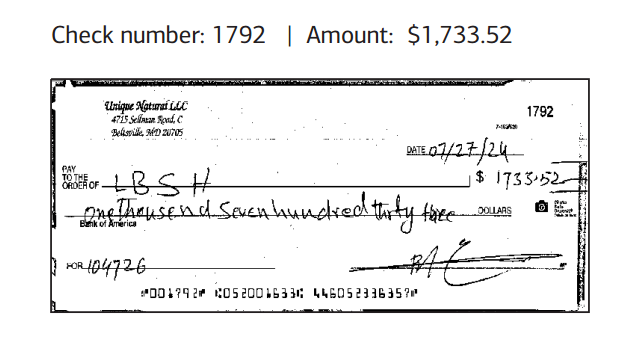 Check number: 1792 | Amount: $1,733.52
Unique Natural LLC
4715 Sellman Road, C
Beltsville, MD 20705
1792
DATE 07/27/24
PAY
TO THE
ORDER OF LBSH $ 1733.52
One Thousend Seven hundred thirty three DOLLARS
Bank of America
FOR 104726
⑈001792⑈ ⑆052001633⑆ 446052336357⑈